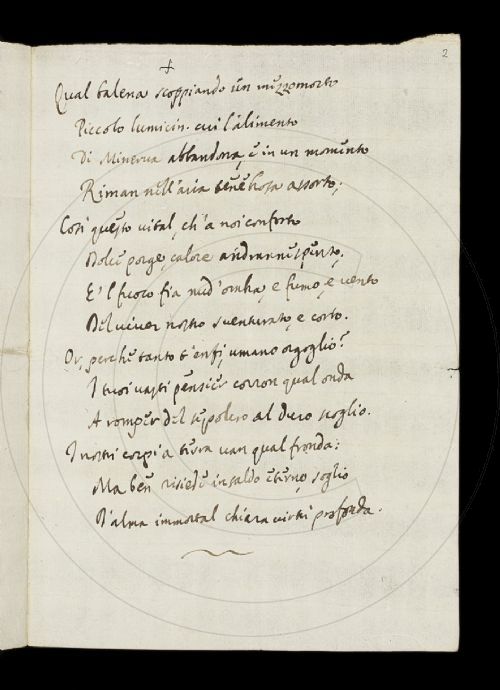 2
+
Qual balena scoppiando un mezzomorto
Piccolo lumicin, cui l'alimento
Di Minerva abbandona, e in un momento
Riman nell'aria tenebrosa assorto;
Così questo vital, ch'a noi conforto
Dolce porge, calore andranne spento,
E 'l fuoco fia nud'ombra, e fumo, e vento
Del viver nostro sventurato, e corto.
Or, perche tanto t'enfi, umano orgoglio?
I tuoi vasti pensier corron qual onda
A romper del sepolcro al duro scoglio.
I nostri corpi a terra van qual fronda:
Ma ben risiede in saldo eterno soglio
D'alma immortal chiara virtù profonda.